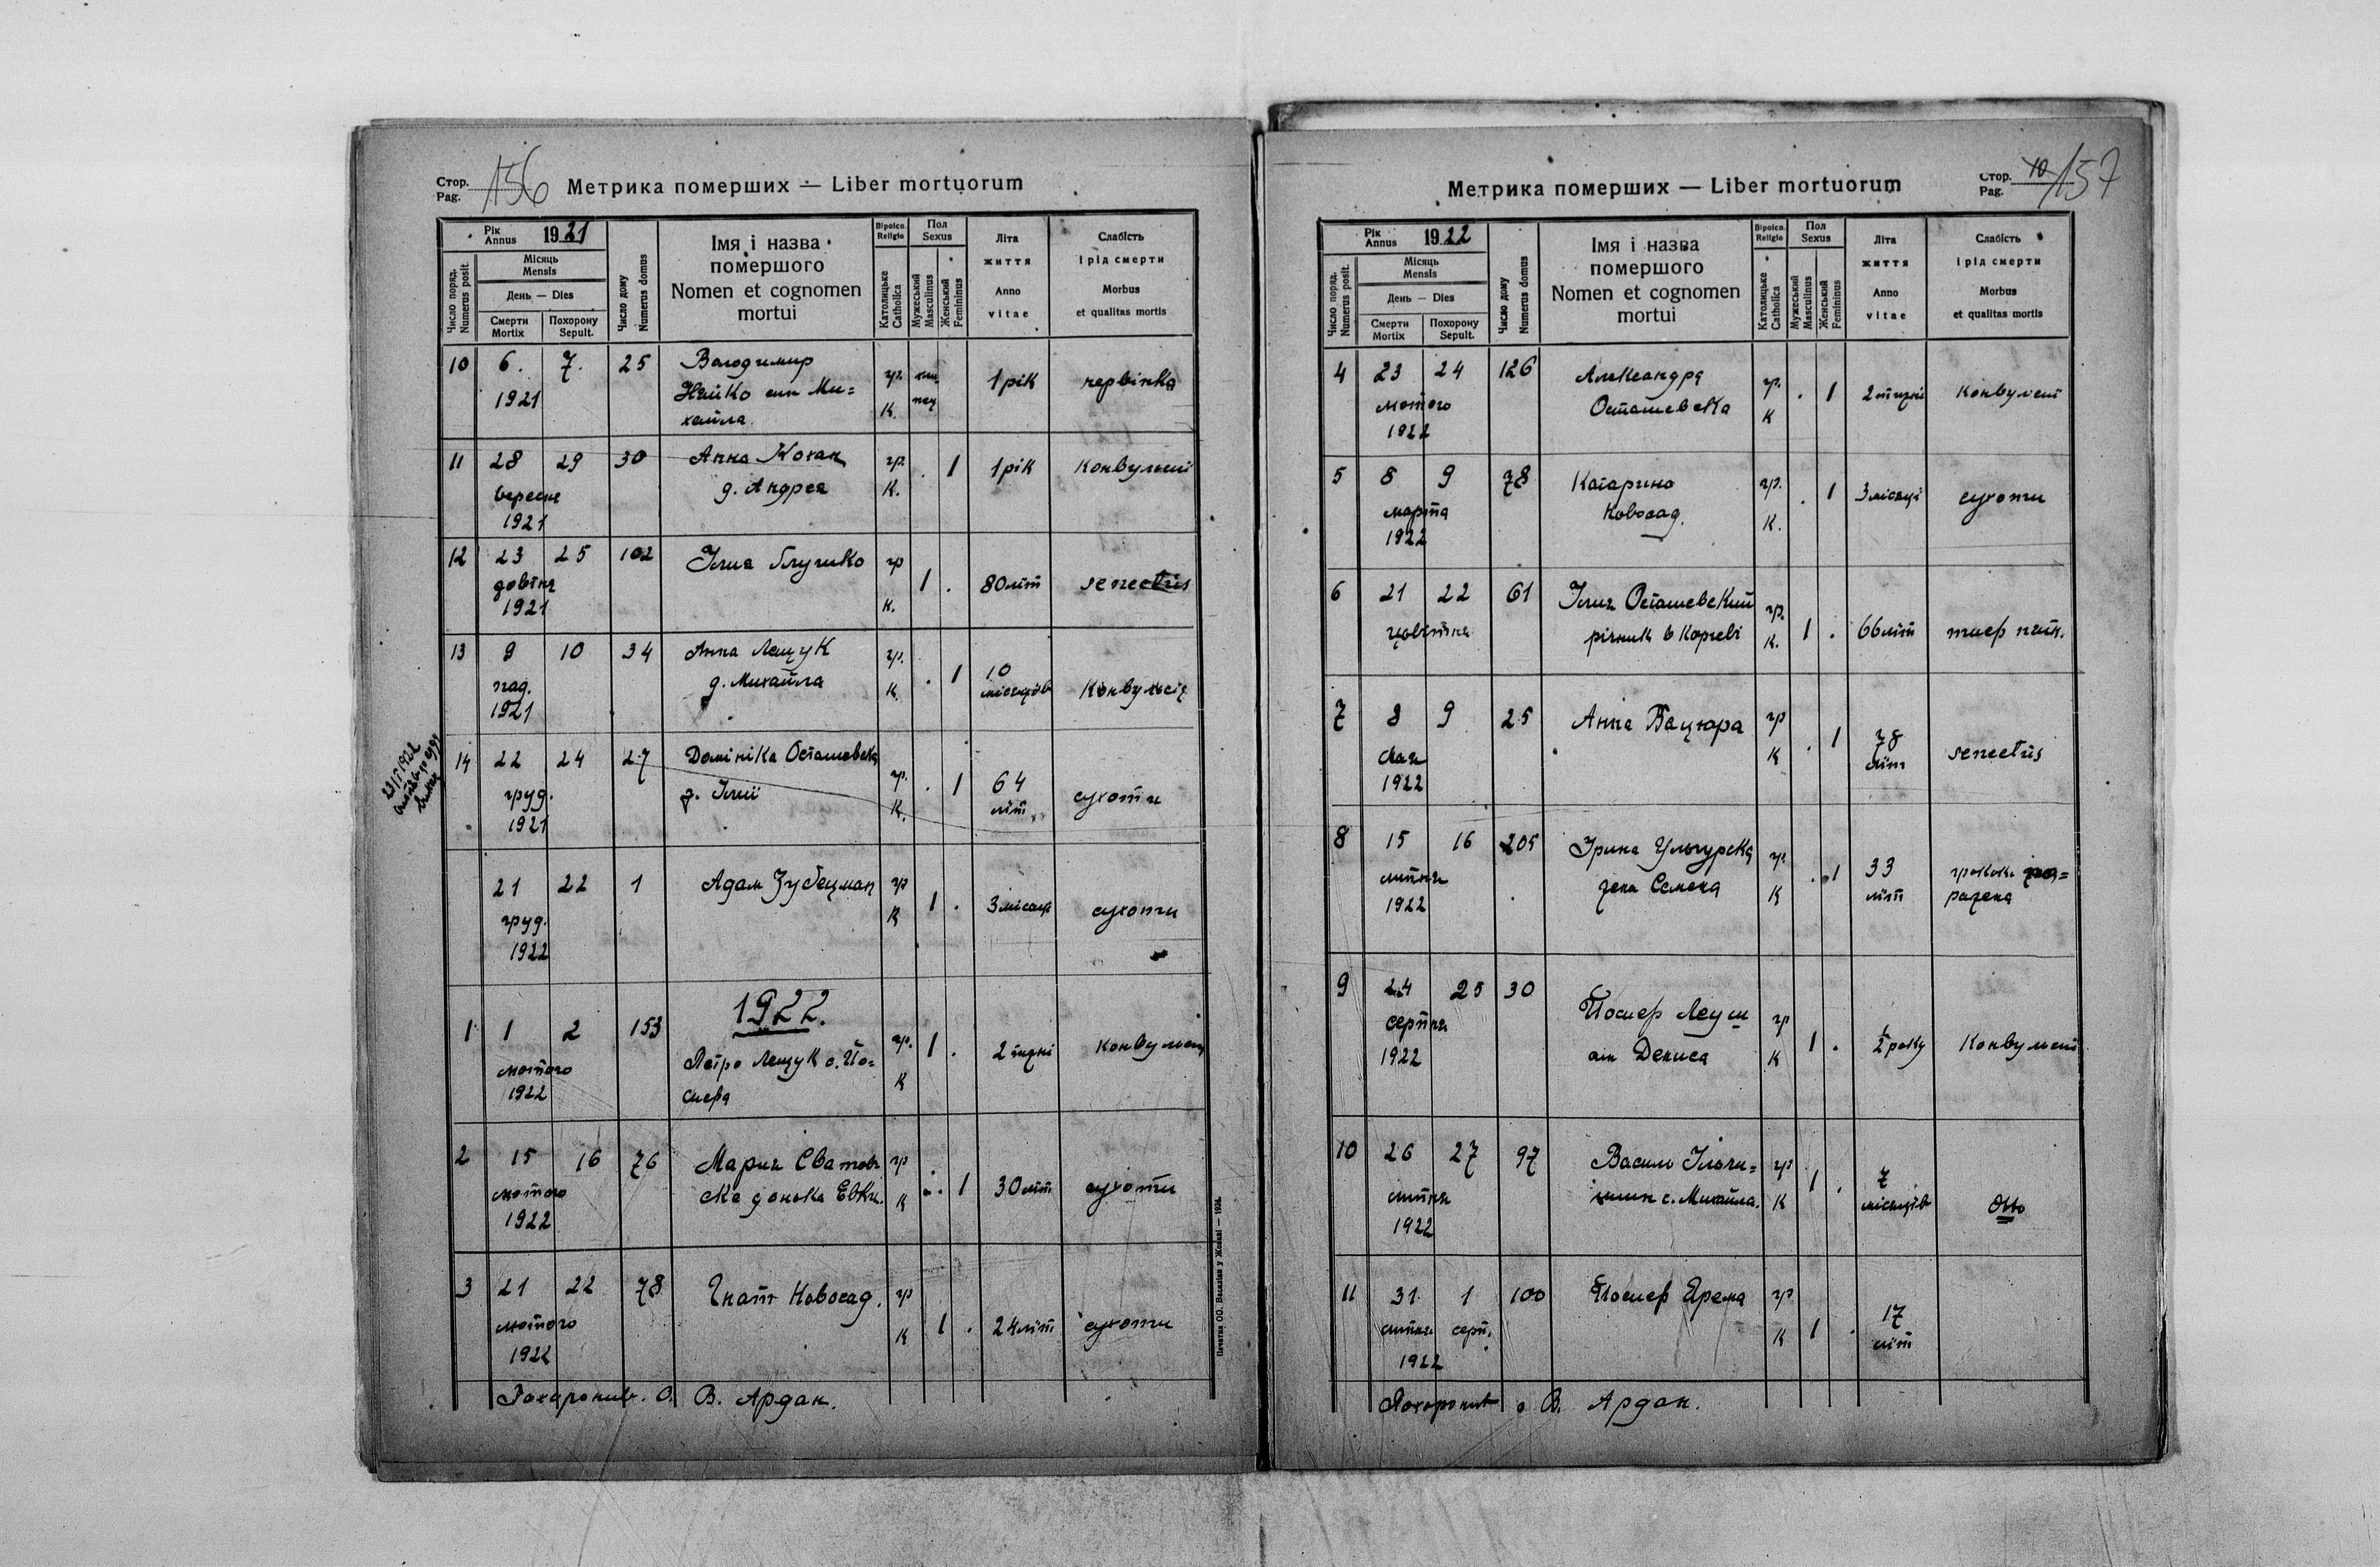 Стор.
Pag.
156
Метрика померших — Liber mortuorum
Рік
Annus
1921
Місяць
Mensis
День — Dies
Число поряд.
Numerus posit.
Смерти
Mortix
Похорону
Sepult.
Число дому
Numerus domus
Імя і назва
помершого
Nomen et cognomen
mortui
Віроісп.
Religio
Католицьке
Catholica
Пол
Sexus
Мужеський
Masculinus
Женський
Femininus
Літа
життя
Anno
vitae
Слабість
і рід смерти
Morbus
et qualitas mortis
10 6. 7. 25 Володимир гр. 1 рік червінка
1921 син Ми= к.
хайла
11 28 29 30 Анна гр. 1 1 рік конвульсиї
вересня д. Андрея к.
1921
12 23 25 102 Ілия гр 1 80 літ senectus
1921 к.
13 9 10 34 Анна Лещук гр. 1 10
пад. д. Михайла к місяців конвульсії
1921
14 22 24 27 Домініка Осташевска гр. 1 64
груд. д. Ілиї к. літ сухоти
1921
21 22 1 Адам гр 1 3 місяці сухоти
груд. к
1922
1922.
1 1 2 153 Петро Лещук с. Йо= гр. 1 2 тижні
лютого сифа к
1922
2 15 16 76 Мария гр 1 30 літ сухоти
лютого донька к
1922
3 21 22 78 Гнат Новосад. гр 1 24 літ сухоти
лютого к
1922
Похоронив. О. В. Ардан.
Метрика померших — Liber mortuorum
Стор.
Pag.
10
157
Рік
Annus
1922
Місяць
Mensis
День — Dies
Число поряд.
Numerus posit.
Смерти
Mortix
Похорону
Sepult.
Число дому
Numerus domus
Імя і назва
помершого
Nomen et cognomen
mortui
Віроісп.
Religio
Католицьке
Catholica
Пол
Sexus
Мужеський
Masculinus
Женський
Femininus
Літа
життя
Anno
vitae
Слабість
і рід смерти
Morbus
et qualitas mortis
4 23 24 126 Александра гр. 1 2 тижні
лютого Осташевска к
1922
5 8 9 78 Катарина гр. 1 3 місяці сухоти
марта Новосад. к.
1922
6 21 22 61 Ілия Осташевский гр. 1 66 літ
к.
7 8 9 25 Анна Бацюра гр 1 78 senectus
мая к літ
1922
8 15 16 205 Ірина гр. 1 33
липня жена Семена к літ
1922
9 24 25 30 Йосиф Леуш гр 1 ½ року конвульсиї
серпня син Дениса к
1922
10 26 27 97 Василь гр 1 7
липня с. Михайла. к місяців
1922
11 31 1 100 Йосиф Ярема гр 1 17
липня серп. к літ
1922
Похоронив о В. Ардан.